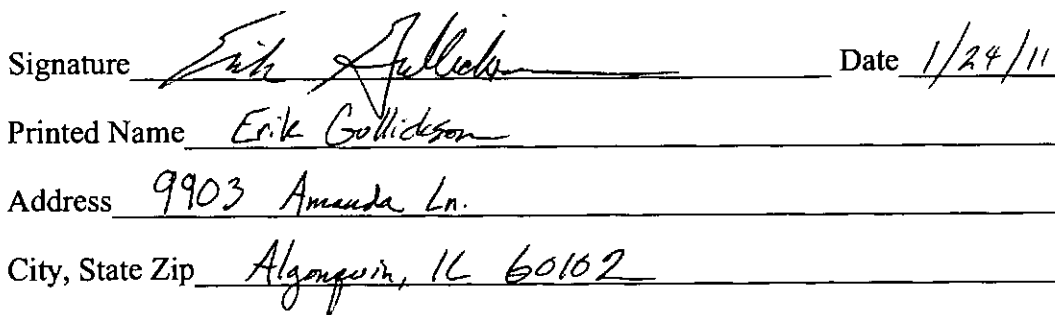 Signature Erik Gullickson Date 1/24/11
Printed Name Erik Gullickson
Address 9903 Amanda Ln.
City, State Zip Algonquin, IL 60102